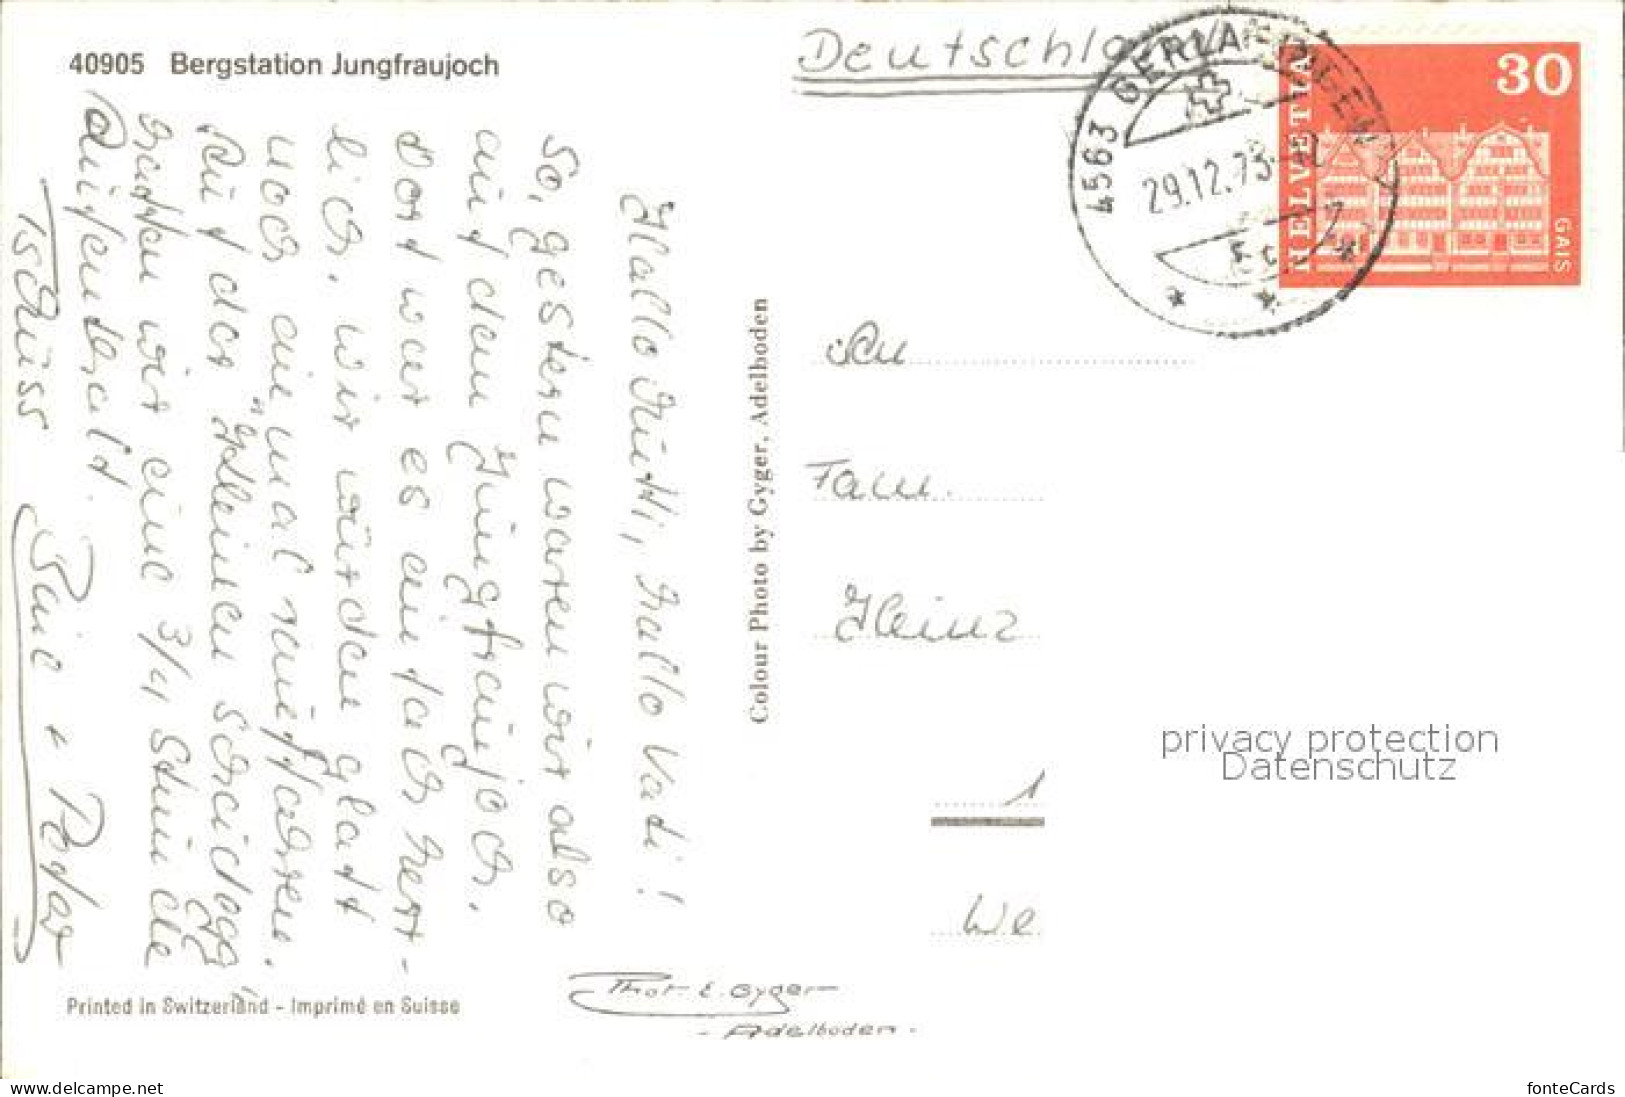 40905 Bergstation Jungfraujoch
Deutschland
4563 GERLAFINGEN
29.12.73
HELVETIA
30
GAIS
Hallo Mutti, hallo Vati!
So, gestern waren wir also
auf dem Jungfraujoch.
Dort war es einfach herr-
lich, wir würden glatt
noch einmal rauffahren.
Auf der "Kleinen Scheidegg"
hatten wir eine 3/4 Stunde
Aufenthalt.
Tschüss
+ Peter
Colour Photo by Gyger, Adelboden
An
Fam.
Heinz
1
We
privacy protection
Datenschutz
Printed in Switzerland - Imprimé en Suisse
Phot. E. Gyger
- Adelboden -
www.delcampe.net
fonteCards